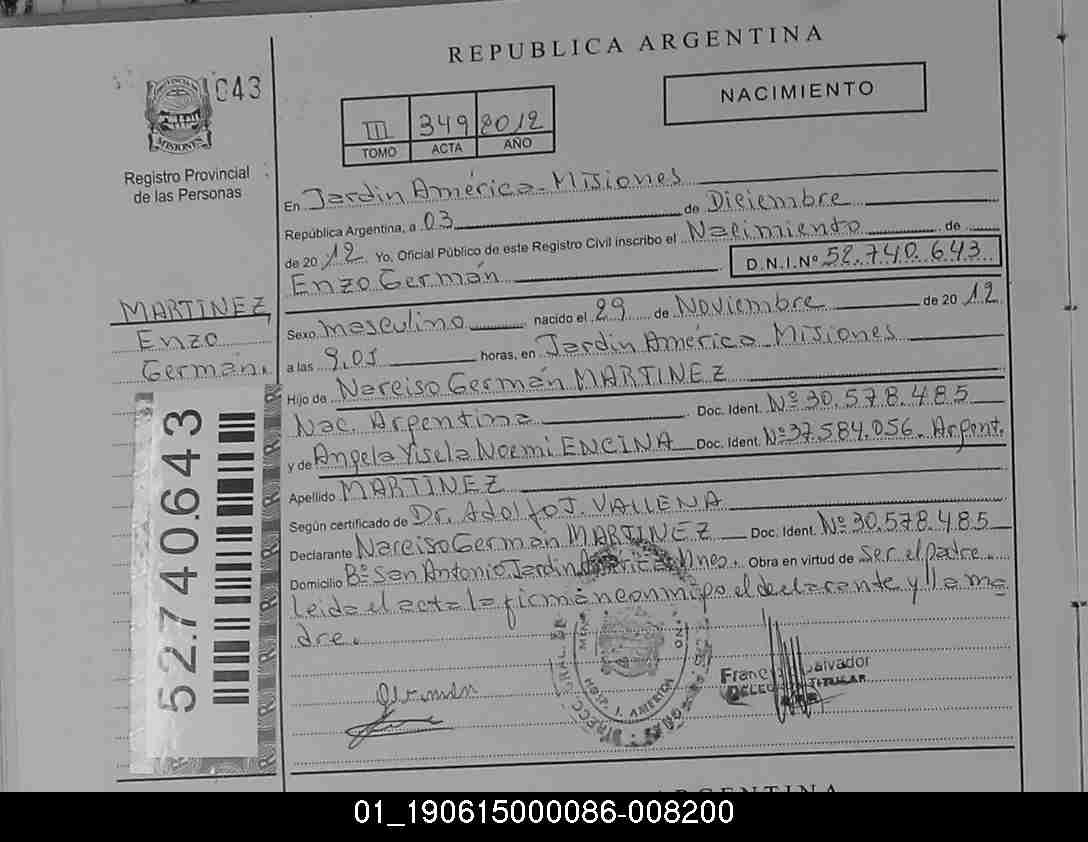 REPUBLICA ARGENTINA
043
NACIMIENTO
PROVINCIA DE
MISIONES
Registro Provincial
de las Personas
III 349 2012
TOMO ACTA AÑO
En Jardin América - Misiones
República Argentina, a 03 de Diciembre
de 2012 Yo, Oficial Público de este Registro Civil inscribo el Nacimiento de
Enzo Germán D.N.I.Nº 52.740.643
MARTINEZ
Enzo
Germán.
Sexo masculino nacido el 29 de Noviembre de 2012
a las 9,05 horas, en Jardin América Misiones
Hijo de Narciso Germán MARTINEZ
Nac. Argentina Doc. Ident. Nº 30.578.485
y de Angela Yisela Noemi ENCINA Doc. Ident. Nº 37.584.056. Argent.
Apellido MARTINEZ
Según certificado de Dr. Adolfo J. VALLENA
Declarante Narciso Germán MARTINEZ Doc. Ident. Nº 30.578.485
Domicilio Bº San Antonio Jardin América Mnes. Obra en virtud de Ser el padre.
Leida el acta la firmán conmigo el declarante y lla ma
dre.
52.740.643
German
HOSP. J. AMERICA
Salvador
TITULAR
ARGENTINA
01_190615000086-008200